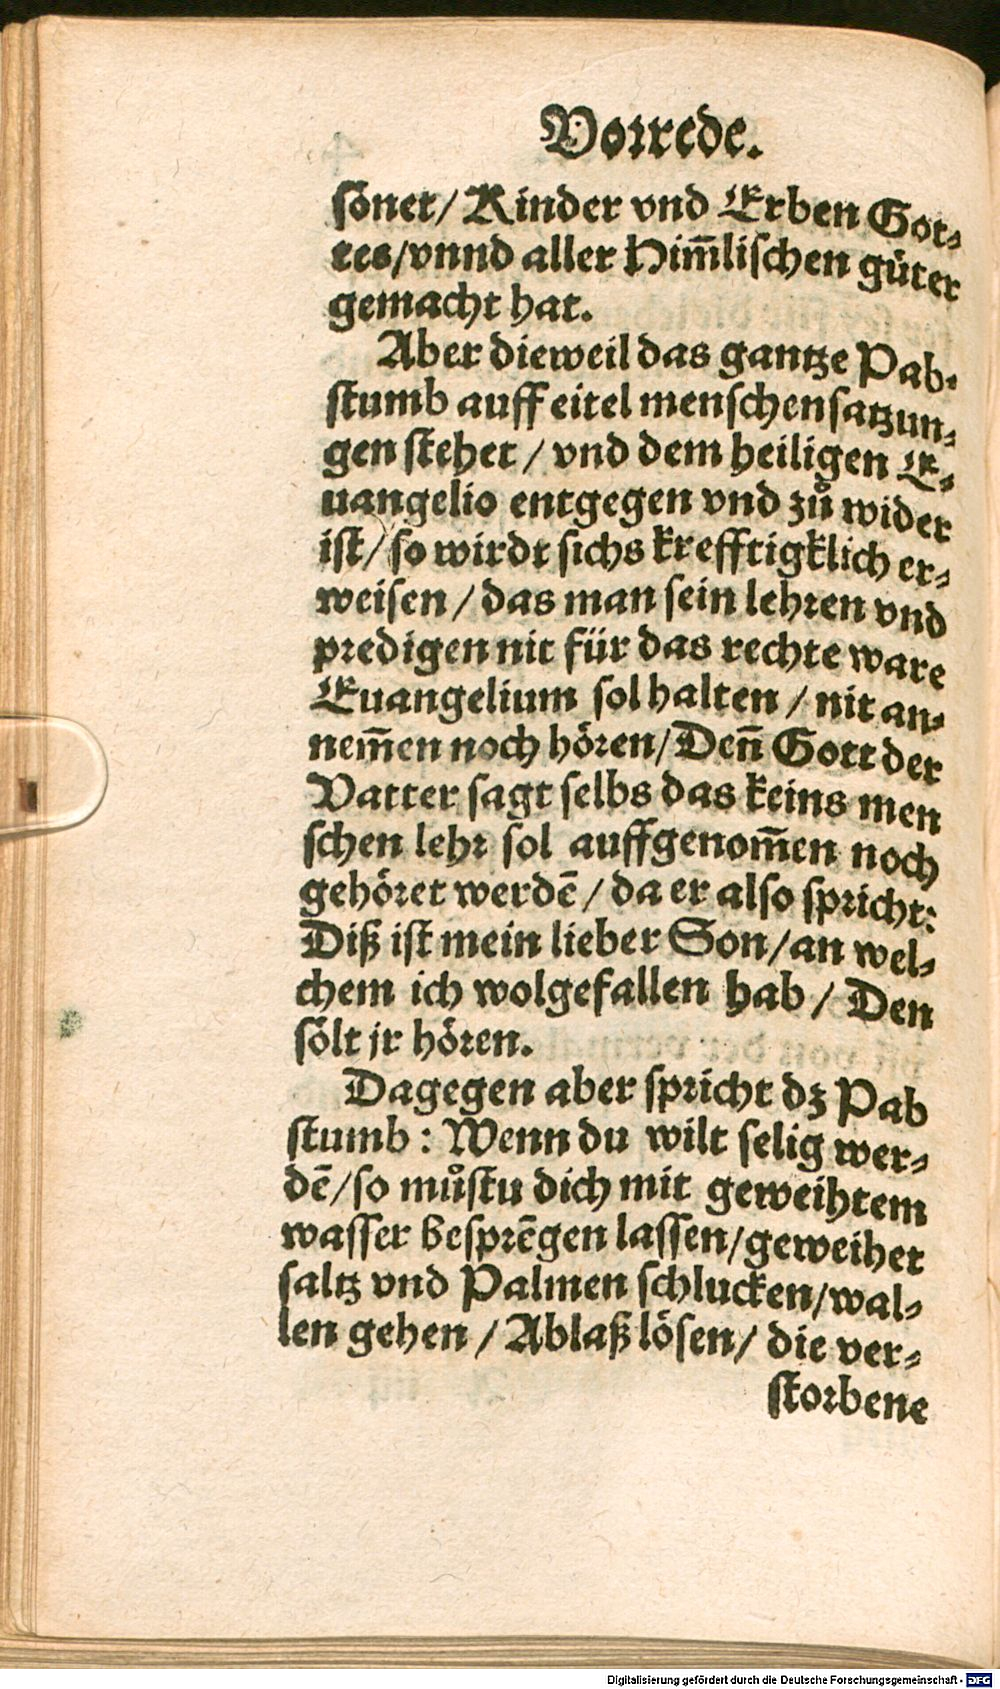 Vorrede.
söner/ Kinder vnd Erben Got-
tes/vnnd aller Him̄lischen güter
gemacht hat.
Aber dieweil das gantze Pab-
stumb auff eitel menschensatzun-
gen stehet / vnd dem heiligen E-
uangelio entgegen vnd zů wider
ist/ so wirdt sichs krefftigklich er-
weisen / das man sein lehren vnd
predigen nit für das rechte ware
Euangelium sol halten / nit an-
nem̄en noch hören/ Deñ Gott der
Vatter sagt selbs das keins men
schen lehr sol auffgenom̄en noch
gehöret werdē / da er also spricht:
Diß ist mein lieber Son/ an wel-
chem ich wolgefallen hab / Den
sölt jr hören.
Dagegen aber spricht dz Pab
stumb : Wenn du wilt selig wer-
dē/so můstu dich mit geweihtem
wasser besprēgen lassen/geweihet
saltz vnd Palmen schlucken/wal-
len gehen / Ablaß lösen/ die ver-
storbene
Digitalisierung gefördert durch die Deutsche Forschungsgemeinschaft - DFG